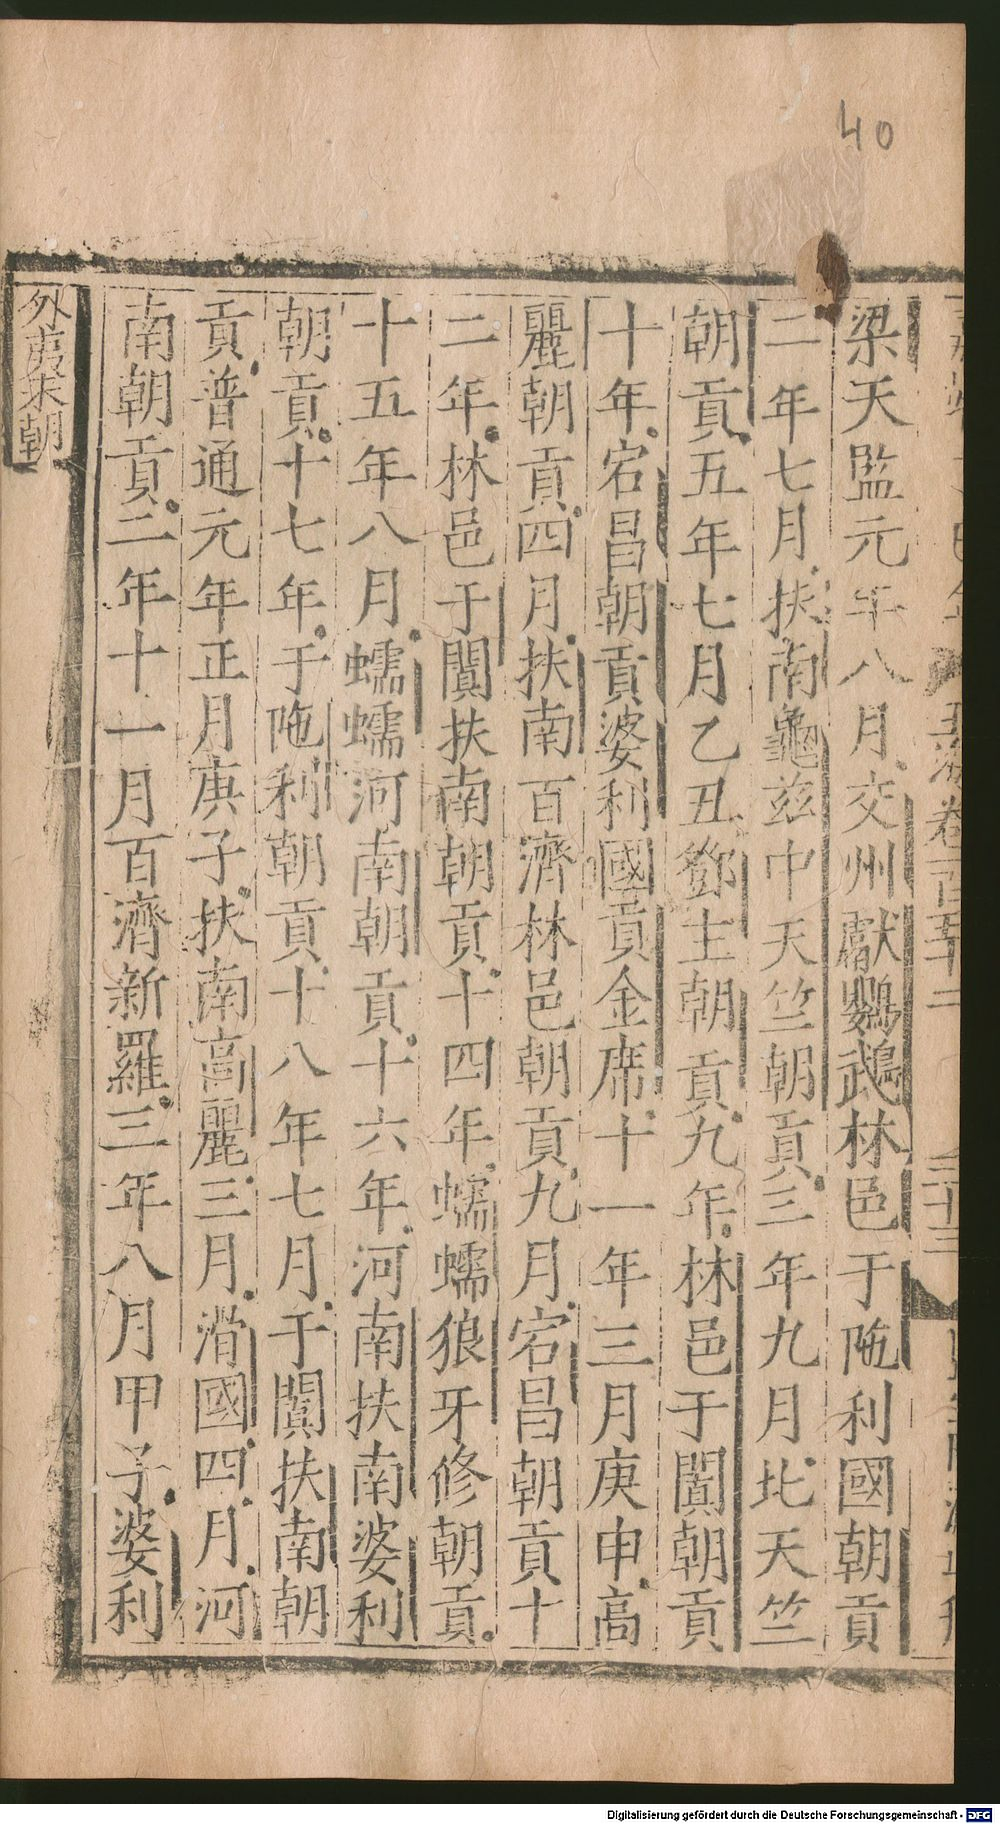 40
玉海卷一百五十二
三十三
梁天監元年八月交州獻鸚鵡林邑于陁利國朝貢
二年七月扶南龜兹中天竺朝貢三年九月北天竺
朝貢五年七月乙丑鄧主朝貢九年林邑于闐朝貢
十年宕昌朝貢婆利國貢金席十一年三月庚申高
麗朝貢四月扶南百濟林邑朝貢九月宕昌朝貢十
二年林邑于闐扶南朝貢十四年蠕蠕狼牙修朝貢
十五年八月蠕蠕河南朝貢十六年河南扶南婆利
朝貢十七年于陁利朝貢十八年七月于闐扶南朝
貢普通元年正月庚子扶南高麗三月滑國四月河
南朝貢二年十一月百濟新羅三年八月甲子婆利
外夷来朝
Digitalisierung gefördert durch die Deutsche Forschungsgemeinschaft - DFG